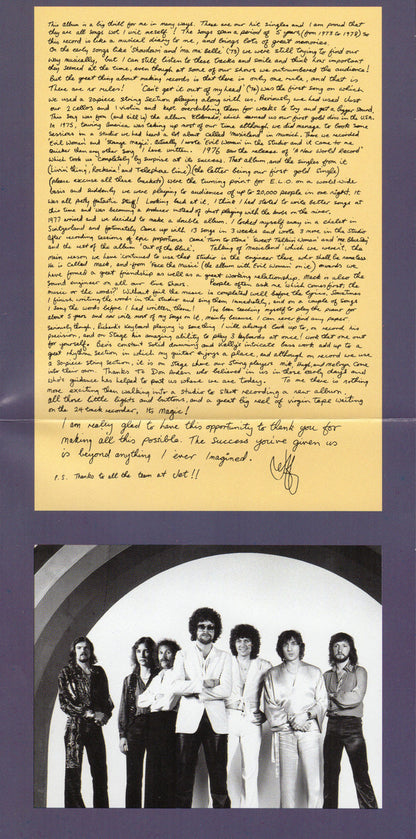 This album is a big thrill for me in many ways. These are our hit singles and I am proud that
they are all songs wot I writ meself! The songs span a period of 5 years (from 1973 to 1978) so
this record is like a musical diary to me, and brings lots of great memories.
On the early songs like 'Showdown' and 'Ma ma Belle' ('73) we were still trying to find our
way musically, but I can still listen to these tracks and smile and think how important
they seemed at the time, even though at some of our shows we outnumbered the audience!
But the great thing about making records is that there is only one rule, and that is
There are no rules! 'Can't get it out of my head' ('74) was the first song on which
we used a 30 piece string section playing along with us, Previously we had used just
our 2 cellos and 1 violin and kept overdubbing them for weeks to try and get a bigger sound,
This song was from (and still is) the album 'Eldorado', which earned us our first gold disc in the U.S.A.
In 1975, touring America was taking up most of our time although we did manage to book some
sessions in a studio we had heard a lot about called 'Musicland' in Munich, Here we recorded
'Evil Woman' and 'Strange magic'. Actually, I wrote 'Evil Woman' in the studio and it came to me
quicker than any other song I have written. 1976 saw the release of 'A New World Record'
Which took us completely by surprise at its success. That album and the singles from it
(Livin' thing, Rockaria! and Telephone Line) (the latter being our first gold single)
(please excuse all these brackets) were the turning point for E.L.O. on a world wide
basis and suddenly we were playing to audiences of up to 20,000 people in one night, It
was all pretty fantastic stuff! Looking back at it, I think I had started to write better songs at
this time and was becoming a producer instead of just playing with the knobs on the mixer.
1977 arrived and we decided to make a double album. I locked myself away in a chalet in
Switzerland and fortunately came up with 13 songs in 3 weeks and wrote 3 more in the studio.
After recording sessions of epic proportions came 'Turn to Stone' 'Sweet Talkin Woman' and 'Mr Blue Sky'
and the rest of the album 'Out of the Blue'. Talking of Musicland which we weren't, the
main reason we have continued to use that studio is the engineer there who shall be nameless
He is called Mack, and from 'Face the music' (the album with Evil Woman on it) onwards we
have formed a great friendship as well as a great working relationship. Mack is also the
Sound engineer on all our live shows. People often ask me 'which comes first; the
music or the words?' Without fail the music is completed well before the lyrics. Sometimes
I finish writing the words in the studio and sing them immediately, and on a couple of songs
I sang the words before I had written them! I've been teaching myself to play the piano for
about 5 years and now write most of my songs on it, mainly because I can never find any paper.
Seriously though, Richard's keyboard playing is something I will always look up to, on record his
precision, and on Stage his amazing ability to play 3 keyboards at once! (work that one out
for yourself), Bev's constant solid drumming and Kelly's intricate bass work add up to a
great rhythm section in which my guitar enjoys a place, and although on record we use
a 30 piece string section, it is on Stage where our string players Mik, Hugh, and Melvyn come
into their own. Thanks To Don Arden who believed in us in those early days and
who's guidance has helped to put us where we are today. To me there is nothing
more exciting than walking into a studio to start recording a new album,
all those little lights and buttons, and a great big reel of virgin tape waiting
on the 24 track recorder, Its Magic!
I am really glad to have this opportunity to thank you for
making all this possible. The success you've given us
is beyond anything I ever imagined.
Jeff
P.S. Thanks to all the team at Jet!!